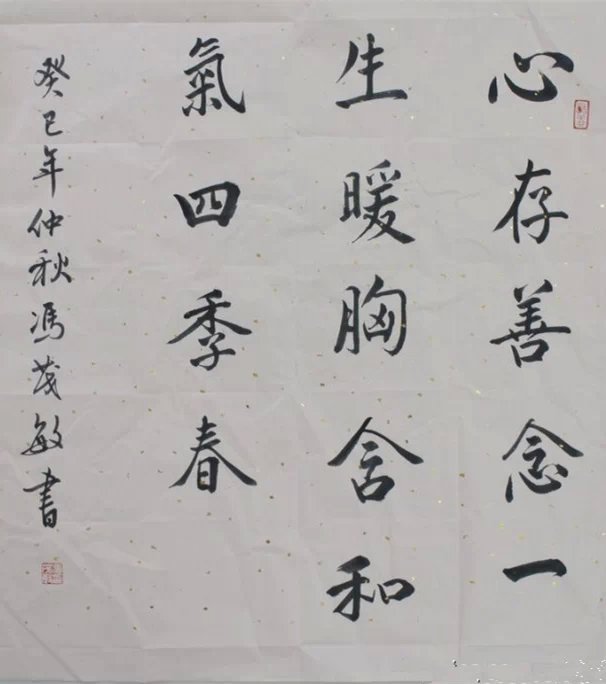 心存善念一
生暖胸含和
氣四季春
癸巳年仲秋馮茂敏書